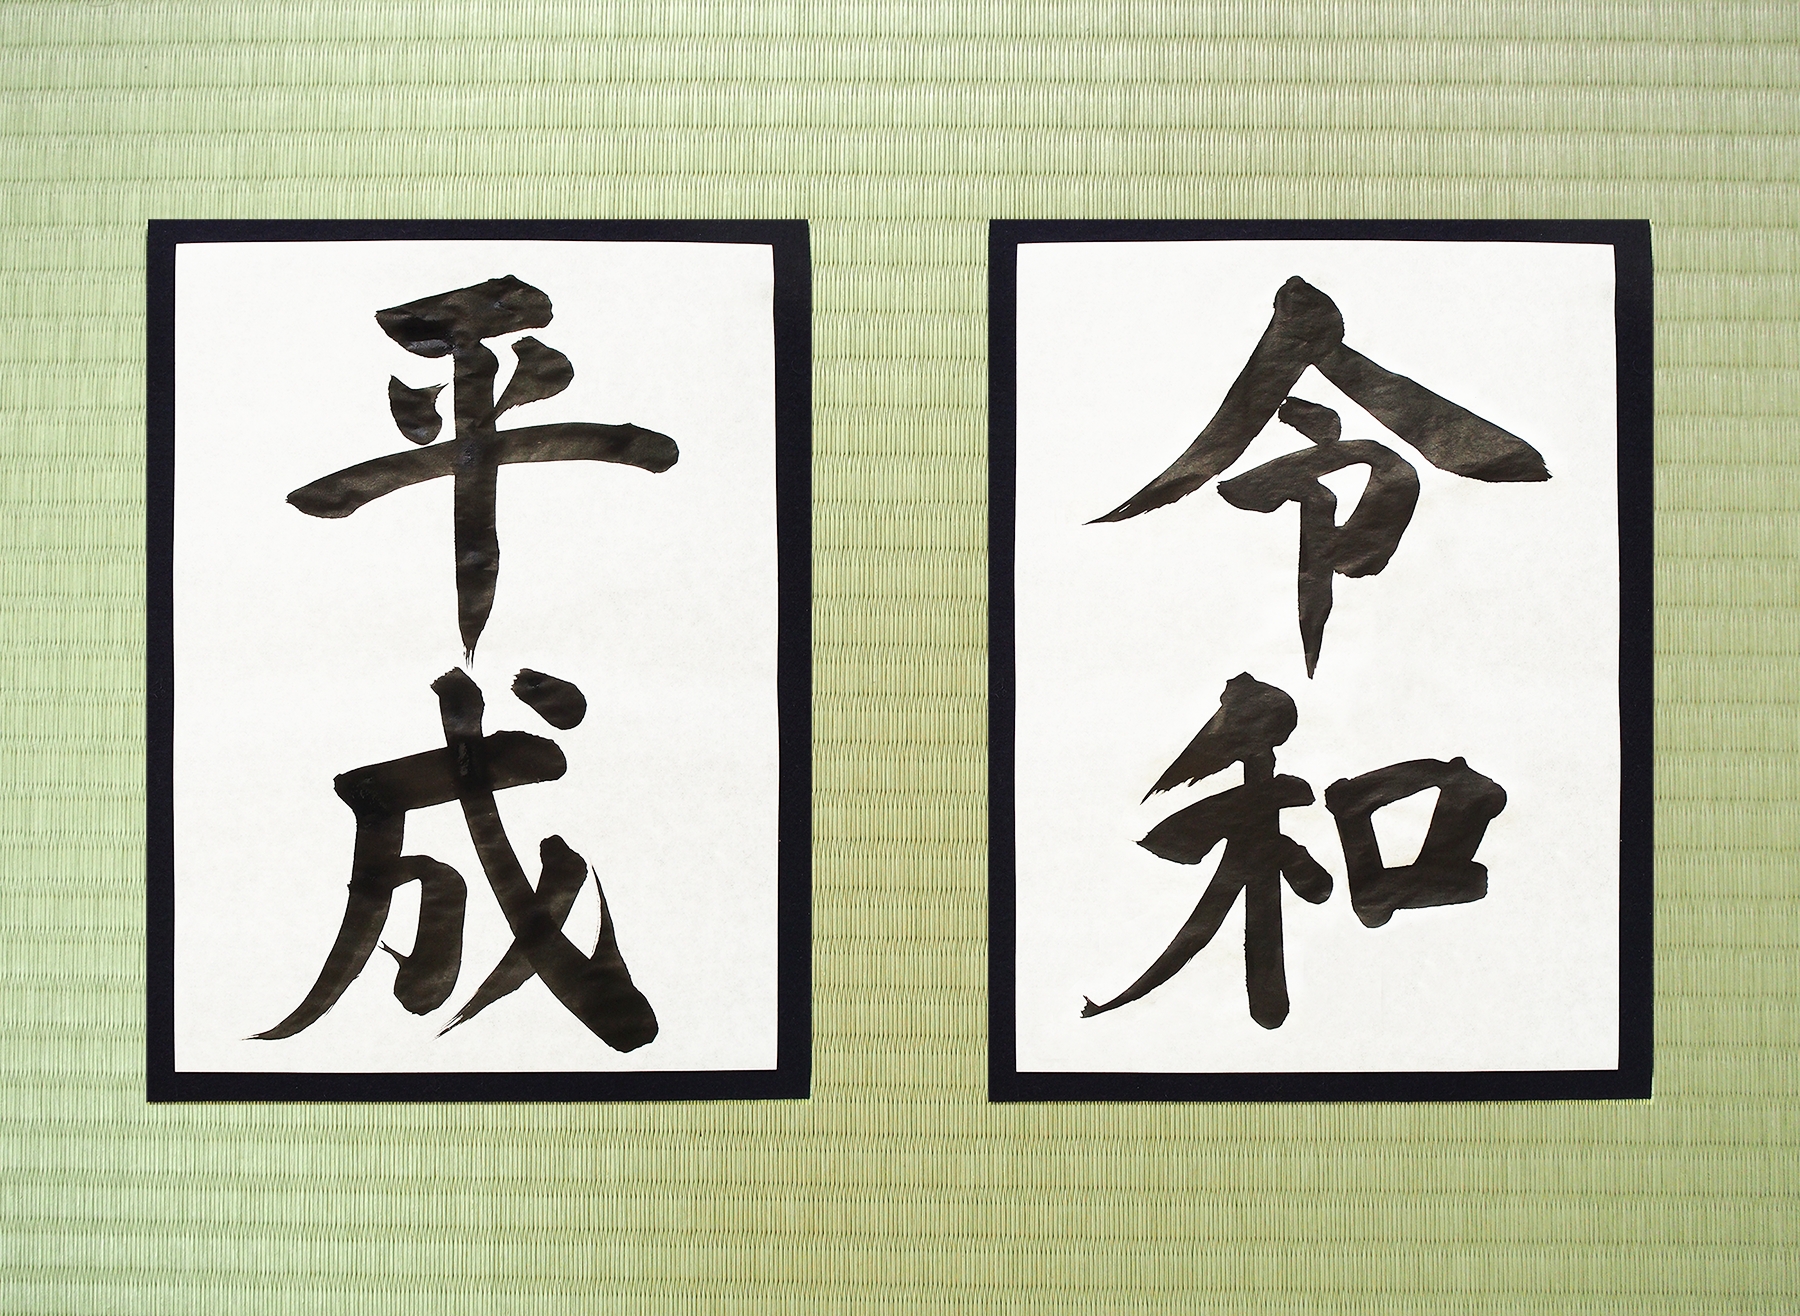 平成
令和